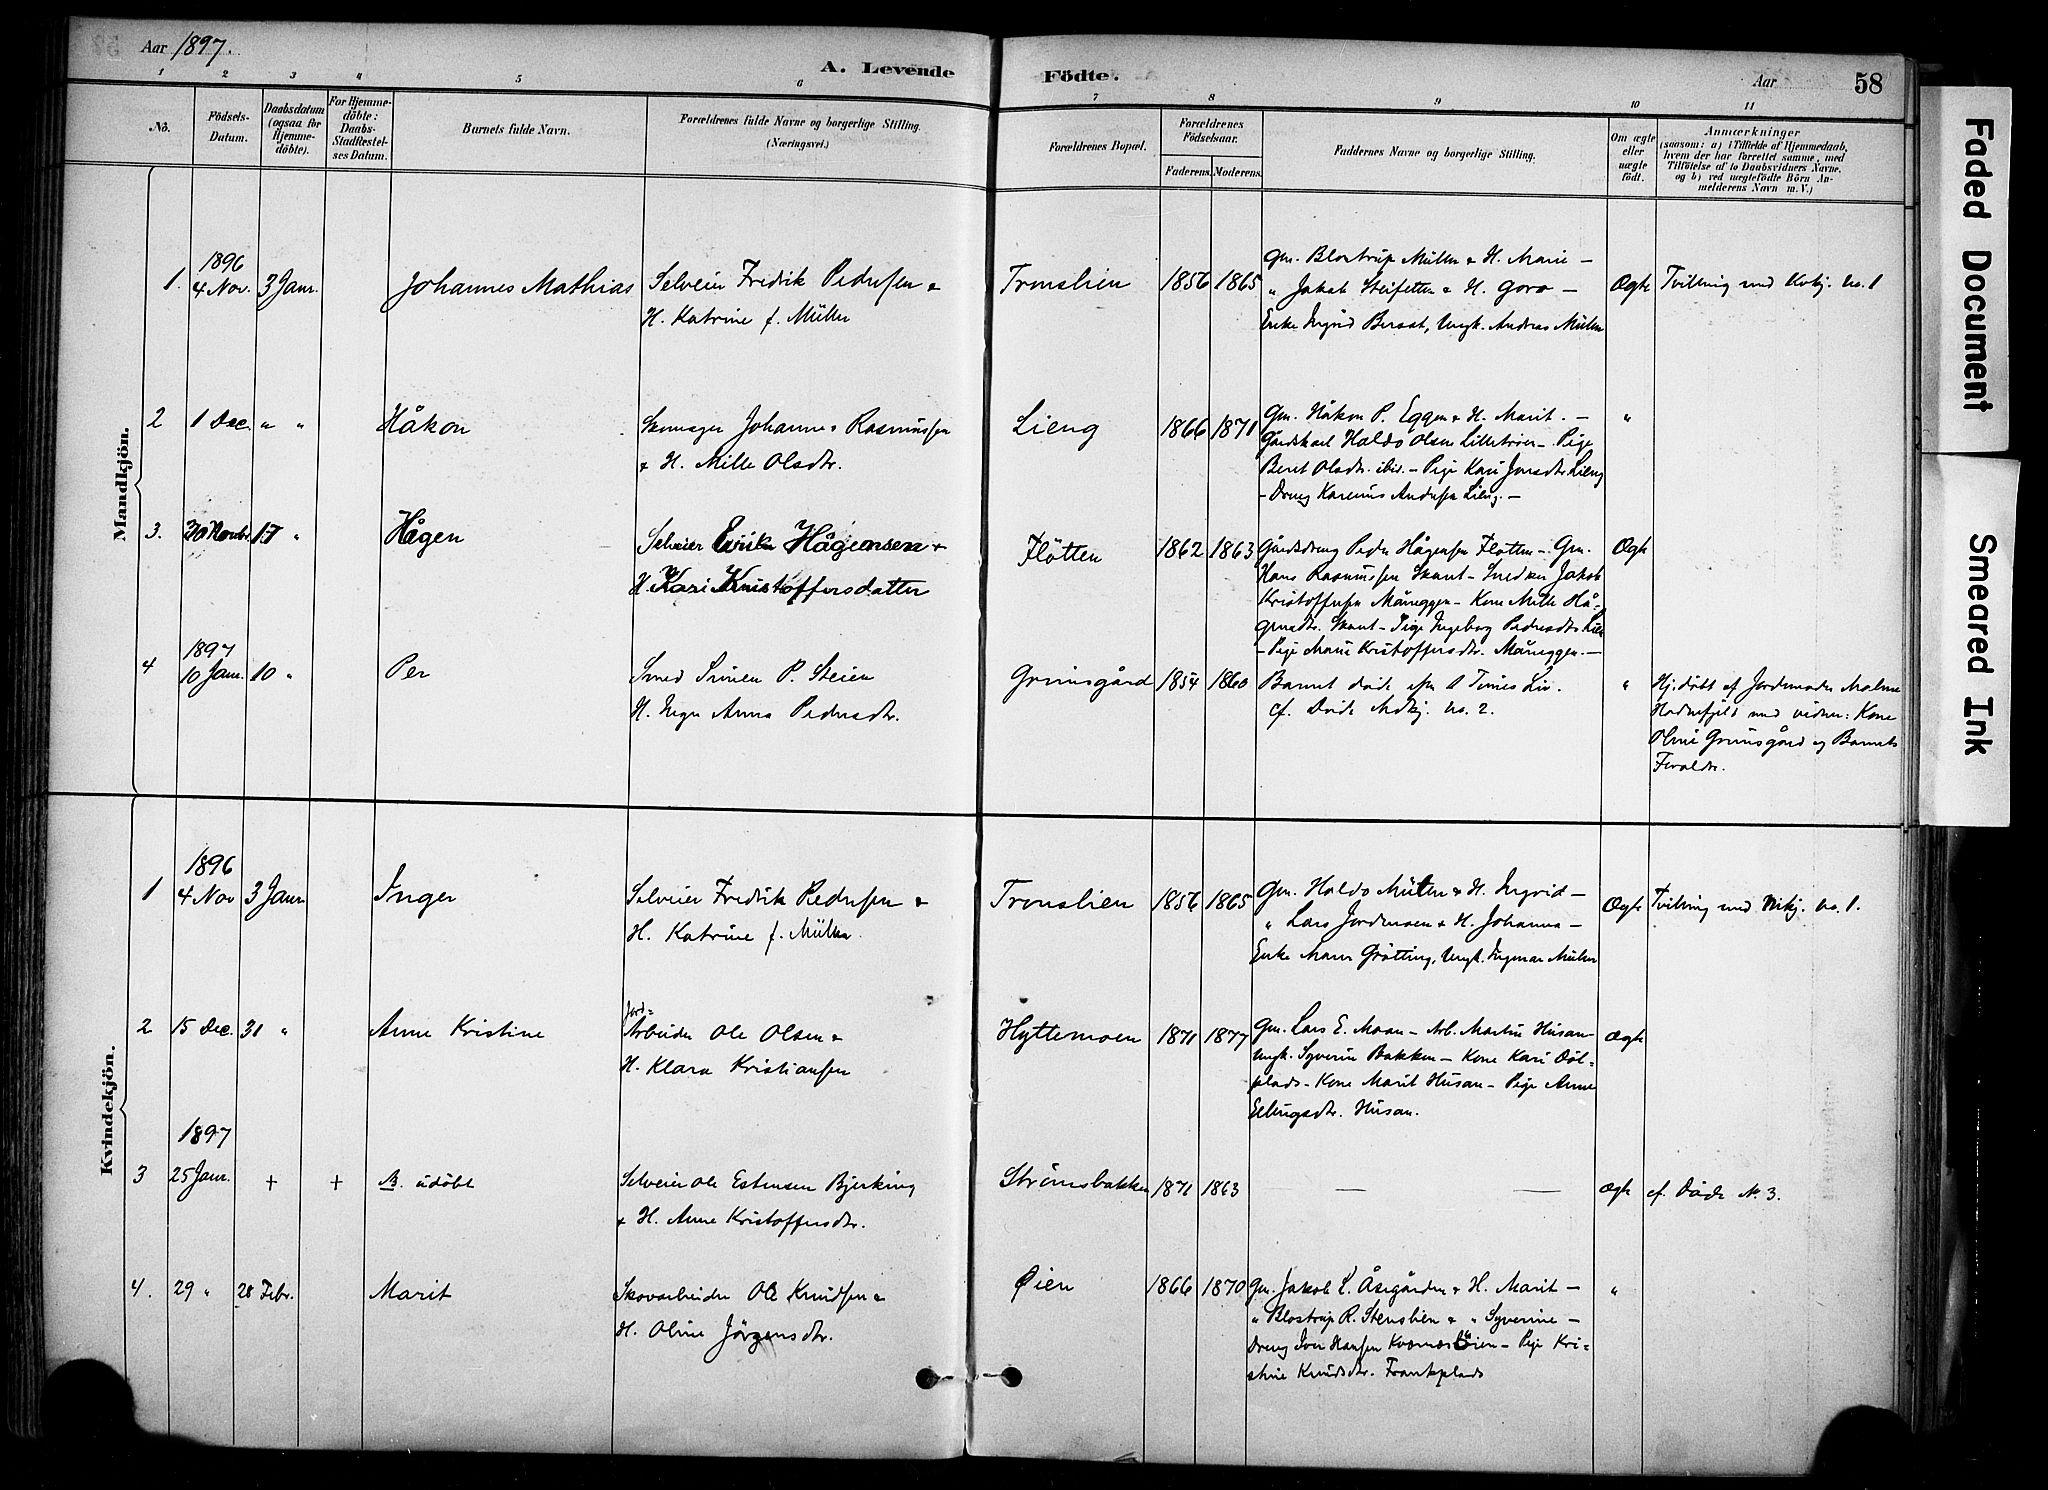 Aar 1897.
A. Levende Födte.
Aar
58
1 2 3 4 5 6 7 8 9 10 11
No.
Födsels-Datum.
Daabsdatum (ogsaa for Hjemme-döbte).
For Hjemme-döbte: Daabs-Stadfæstel-ses Datum.
Barnets fulde Navn.
Forældrenes fulde Navne og borgerlige Stilling. (Næringsvei.)
Forældrenes Bopæl.
Forældrenes Födselsaar.
Faderens. Moderens.
Faddernes Navne og borgerlige Stilling.
Om ægte eller uægte födt.
Anmærkninger
(saasom: a) i Tilfælde af Hjemmedaab,
hvem der har forrettet samme, med
Tilföielse af to Daabsvidners Navne,
og b) ved uægtefödte Börn An-
melderens Navn m. V.)
Mandkjön.
1. 1896 4 Nov. 3 Janr. Johannes Mathias
Selveier Fredrik Pedersen &
H. Katrine f. Müller
Tronslien 1856 1865
Gm. Blostrup Müller & H. Marie –
" Jakob Steifetten & H. Goro –
Enke Ingrid Bersat, Ungk. Andreas Müller
Ægte Tvilling med Kvkj. No. 1
2 1 Dec. " " Håkon
Skomager Johannes Rasmussen
& H. Mille Olsdtr.
Lieng 1866 1871
Gm. Håkon P. Eggen & H. Marit. –
Gårdskarl Haldo Olsen Lilletrøen – Pige
Beret Olsdtr. ibid. – Pige Kari Jonsdtr. Lieng
– Dreng Karenus Andersen Lieng. –
"
3. 30 Novbr. 17 " Hågen
Selveier Erik Hågensen &
H. Kari Kristoffersdatter
Flötten 1862 1863
Gårdsdreng Peder Hågensen Flötten – Gm.
Hans Rasmussen Skaut – Snedker Jakob
Kristoffersen Måneggen – Kone Mille Hå-
gensdtr. Skaut – Pige Ingeborg Pedersdtr. Lien
– Pige Marie Kristoffersdtr. Måneggen. –
Ægte
4 1897 10 Janr. 10 " Per
Smed Simen P. Steien
H. Inger Anna Pedersdtr.
Grimsgård 1854 1860
Barnet döde efter Times Liv.
cf. Døde Mdkj. No. 2.
" Hj.döbt af Jordemoder Malene
med vidner: Kone
Oline Grimsgård og Barnets
Forældre.
Kvindekjön.
1 1896 4 Nov 3 Janr Inger
Selveier Fredrik Pedersen &
H. Katrine f. Müller.
Tronslien 1856 1865
Gm. Haldo Müller & H. Ingrid –
" Lars Jordmoen & H. Johanna –
Enke Maren Gröttting, Ungk. Ingmar Müller
Ægte Tvilling med Mkj. No. 1.
2 15 Dec. 31 " Anne Kristine
Jord=
Arbeider Ole Olsen &
H. Klara Kristiansen
Hyttemoen 1871 1877
Gm. Lars E. Moan – Arb. Martin Husan –
Ungk. Syverin Bakken – Kone Kari Döl-
plads – Kone Marit Husan – Pige Anne
Ellingsdtr. Husan.
Ægte
3 1897 25 Janr. + + B. udöbt
Selveier Ole Estensen Bjerking
& H. Anne Kristoffersdtr.
Strömsbakken 1871 1863 — —
Ægte cf. Døde N. 3.
4. 29 " 28 Febr. Marit
Skovarbeider Ole Knudsen &
H. Oline Jörgensdtr.
Øien 1866 1870
Gm. Jakob L. Åsgården & H. Marit –
" Blostrup R. Stenslien & " Syverine –
Dreng Iver Hansen Kværnesöien – Pige Kri-
stine Knudsdtr. Frankplads
"
Faded Document
Smeared Ink